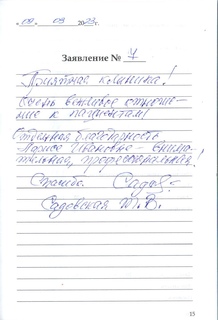 «09» 03 2023г.
Заявление № 7
Приятная клиника!
Очень вежливое отноше-
ние к пациентам!
Отдельная благодарность
Ларисе Ивановне - внима-
тельная, профессиональная!
Спасибо.
Садовская Т. В.
15